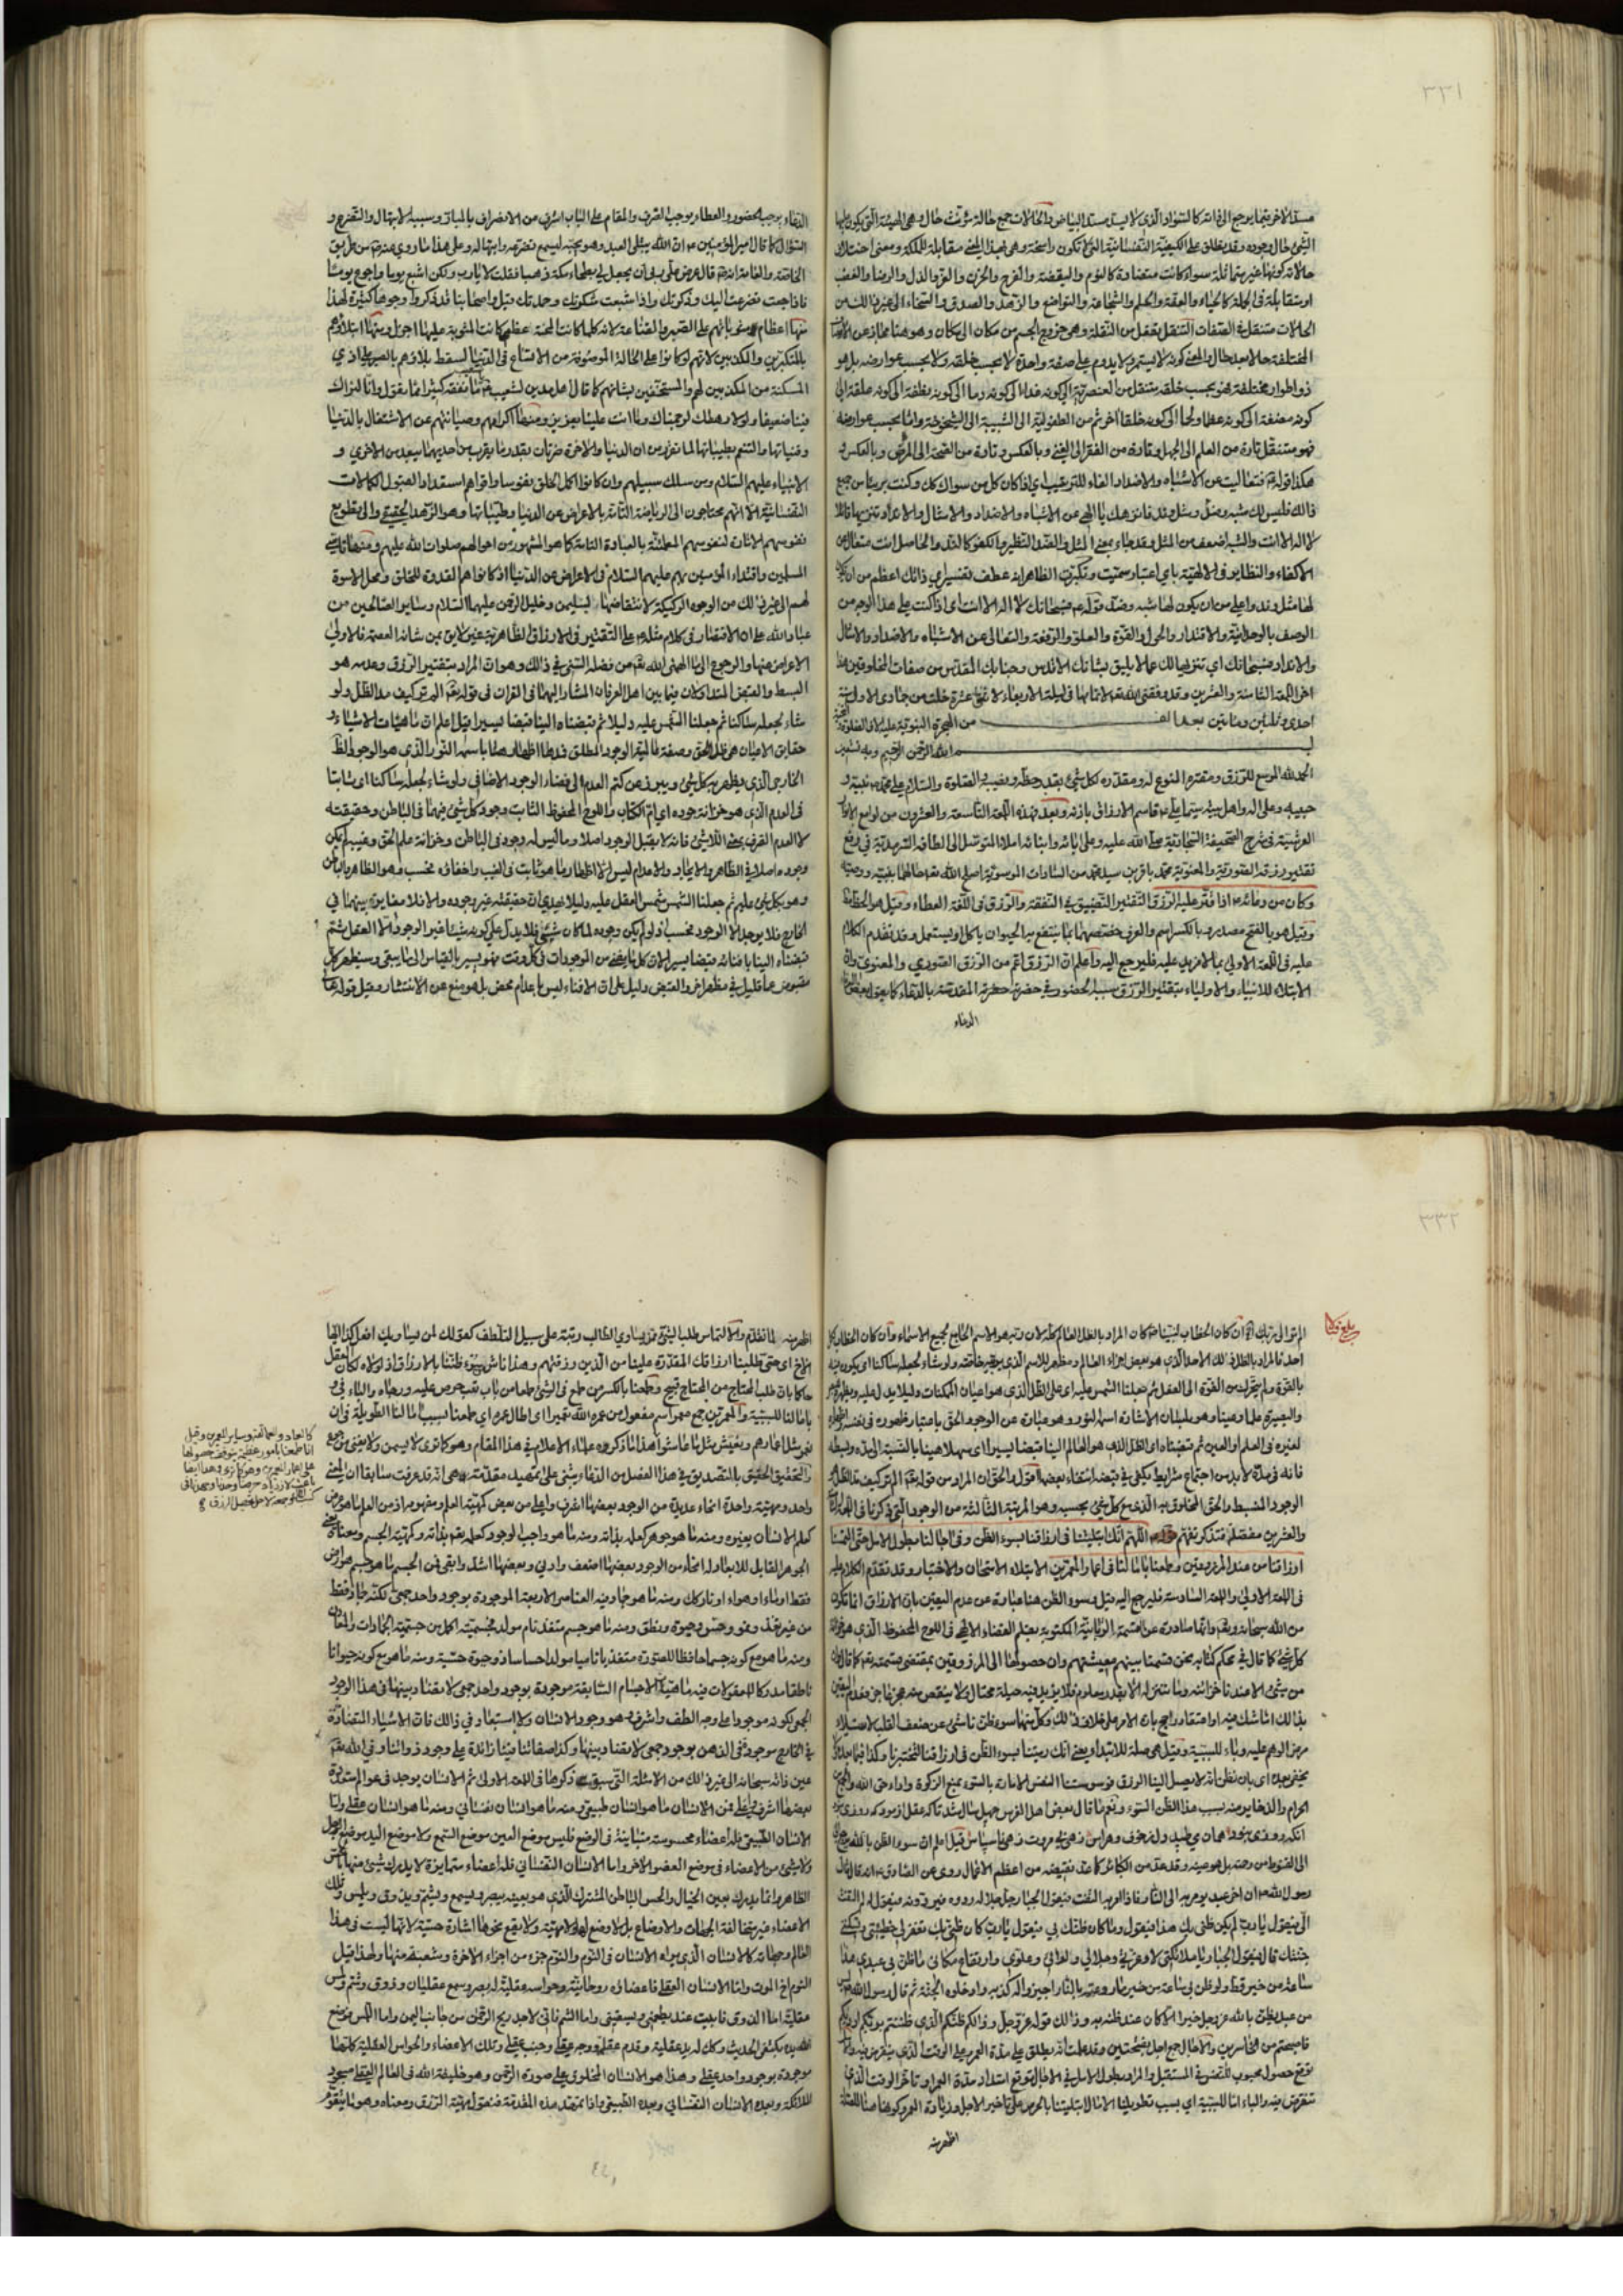 ٣٣١
مسدالآخر بتمايوجع الى ذاته كالسواد الذي لا يسد مسد البياض والحالات جمع حالة مؤنث حال وهي الهيئة التي يكون عليها
الشئ حال وجوده وقد يطلق على الكيفية النفسانية التي لا تكون راسخة وهي بهذا المعنى مقابلة للملكة ومعنى اختلاف
حالاته كونها غير متماثلة سواء كانت متضادة كالنوم واليقضة والفرح والحزن والعز والذل والرضا والغضب
او متقابلة في الجملة كالحياء والعفة والحلم والشجاعة والتواضع والزهد والصدق والسخاء الى غير ذلك من
الحالات متنقل في الصفات التنقل تفعل من النقلة وهي خروج الجسم من مكان الى مكان وهو هنا مجاز عن الاتصاف
المختلفة حالا بعد حال والمعنى كونه لا يستمر ولا يدوم على صفة واحدة لا بحسب خلقه ولا بحسب عوارضه بل هو
ذو اطوار مختلفة فهو بحسب خلقه متنقل من العنصرية الى كونه غذاء الى كونه دما الى كونه نطفة الى كونه علقة الى
كونه مضغة الى كونه عظاما ولحما الى كونه خلقا آخر ثم من الطفولية الى الشبيبة الى الشيخوخة واما بحسب عوارضه
فهو متنقل تارة من العلم الى الجهل وتارة من الفقر الى الغنى وبالعكس وتارة من الصحة الى المرض وبالعكس و
هكذا قوله فتعاليت عن الاشباه والاضداد الفاء للترتيب اي اذا كان كل من سواك كك وكنت بريئا من جميع
ذالك فليس لك شبه وضد ومثل وند فانزهك يا الهي عن الاشباه والاضداد والامثال والاعداد تنزيها قائلا
لا اله الا انت والشبه اضعف من المثل وقد جاء بمعنى المثل والضد النظير والكفو كالند والحاصل انت متعال عن
الاكفاء والنظاير في الالهية باي اعتبار سميت وتكبرت الظاهر انه عطف تفسير اي ذاتك اعظم من ان يكون
لها مثل وند واعلى من ان يكون لها شبه وضد قوله فسبحانك لا اله الا انت اي اذا كنت على هذا الوجه من
الوصف بالوحدانية والاقتدار والحول والقوة والعلو والرفعة والتعالى عن الاشباه والاضداد والامثال
والانداد فسبحانك اي تنزيها لك عما لا يليق بشانك الاقدس وجنابك المقدس من صفات المخلوقين هذا
اخر اللمعة الثامنة والعشرين وقد وفقني الله تعالى لاتمامها في ليلة الاربعاء لاثنتي عشرة خلت من جمادى الاولى سنة
احدى وثلثين ومائتين بعد الف من الهجرة النبوية عليه الاف الصلوة والتحية
بسم الله الرحمن الرحيم وبه نستعين
الحمد لله الموسع للرزق ومقتره المنوع له ومقدره لكل شئ بقدر حظه ونصيبه والصلوة والسلام على محمد نبيه و
حبيبه وعلى اله واهل بيته سيما علي قاسم الارزاق باذنه وبعد فهذه اللمعة التاسعة والعشرون من لوامع الانوار
العرشية في شرح الصحيفة السجادية صلى الله عليه وعلى ابائه وابنائه املاء المتوسل الى لطائفه السرمدية في دفع
تقتير رزقه الصورية والمعنوية محمد باقر بن سيد محمد من السادات الموسوية اصلح الله تعالى حالهما بنبيه ووصيه
وكان من دعائه اذا قتر عليه الرزق التقتير التضييق في النفقة والرزق في اللغة العطاء وقيل هو الحظ
وقيل هو بالفتح مصدر وبالكسر اسم والعرف خصصهما بما ينتفع به الحيوان ياكل او يستعمل وقد تقدم الكلام
عليه في اللمعة الاولى بما لا مزيد عليه فليرجع اليه واعلم ان الرزق اعم من الرزق الصوري والمعنوي وان
الابتلاء للانبياء والاولياء بتقتير الرزق سببه الحضور في حضرة حضرته المقدسة بالدعاء كما يقول بعض
الدعاء
الدعاء يوجب الحضور والعطاء يوجب الصرف والمقام على الباب اشرف من الانصراف بالمبار وسببه الابتهال والتضرع و
السؤال كما قال امير المؤمنين ان الله يبتلي العبد وهو يحبه ليسمع تضرعه وابتهاله وعلى هذا ما روي
الخاصة والعامة انه قال عرض علي ربي ان يجعل لي بطحاء مكة ذهبا فقلت لا يا رب ولكن اشبع يوما واجوع يوما
فاذا جعت تضرعت اليك وذكرتك واذا شبعت شكرتك وحمدتك قيل واصحابنا قد ذكروا وجوها كثيرة لهذا
منها اعظام مثوباتهم على الصبر والقناعة لانه كلما كانت المحنة اعظم كانت المثوبة عليها اجزل ومنها ابتلاؤهم
بالمتكبرين والمكذبين لانهم لو كانوا على الحالة الموصوفة من الاتساع في الدنيا لسقط بلاؤهم بالصبر على اذي
المسكنة من المكذبين لهم والمستخفين بشانهم كما قال اهل مدين لشعيب ما نفقه كثيرا مما تقول وانا لنراك
فينا ضعيفا ولولا رهطك لرجمناك وما انت علينا بعزيز ومنها اكرامهم وصيانتهم عن الاشتغال بالدنيا
وقنياتها والتنعم بطيباتها لما تقرر من ان الدنيا والاخرة ضرتان بقدر ما يقرب من احديهما يبعد من الاخرى و
الانبياء عليهم السلام ومن سلك سبيلهم وان كانوا اكمل الخلق نفوسا واقواهم استعدادا لقبول الكمالات
النفسانية الا انهم محتاجون الى الرياضة التامة بالاعراض عن الدنيا وطيباتها وهو الزهد الحقيقي والى تطويع
نفوسهم الامارة لنفوسهم المطمئنة بالعبادة التامة كما هو المشهور من احوالهم صلوات الله عليهم ومنها
المسلمين واقتداء المؤمنين بهم عليهم السلام في الاعراض عن الدنيا اذ كانوا هم القدوة للخلق ومحل الاسوة
لهم الى غير ذلك من الوجوه الركيكة لانتقاضها بسليمن وخليل الرحمن عليهما السلام وساير الصالحين من
عباد الله على ان الاقتصار في كلام مثله على التقتير في الارزاق الظاهرية غير لايق بمن شانه العصمة فالاولى
الاعراض عنها والرجوع الى ما الهمني الله تعالى من فضله السني في ذالك وهو ان المراد بتقتير الرزق وعدمه هو
البسط والقبض المتداولان فيما بين اهل العرفان المشار اليهما في القران في قوله تعالى الم تر كيف مد الظل ولو
شاء لجعله ساكنا ثم جعلنا الشمس عليه دليلا ثم قبضناه الينا قبضا يسيرا قيل اعلم ان ماهيات الاشياء و
حقايق الاعيان هي ظل الحق وصفة عالمية الوجود المطلق فمدها اظهارها باسمه النور الذي هو الوجود الظاهر
الخارجي الذي يظهر به كل شئ ويبرز من كتم العدم الى فضاء الوجود الاضافي ولو شاء لجعله ساكنا اي ثابتا
في العدم الذي هو خزانة جوده اي ام الكتاب واللوح المحفوظ الثابت وجود كل شئ فيهما في الباطن وحقيقته
لا العدم الصرف بمعنى اللاشئ فانه لا يقبل الوجود اصلا وما ليس له وجود في الباطن وخزانة علم الحق وغيبه لم يكن
وجوده اصلا في الظاهر والايجاد والاعدام ليس الا اظهار ما هو ثابت في الغيب واخفاؤه فحسب وهو الظاهر والباطن
وهو بكل شئ عليم ثم جعلنا الشمس شمس العقل عليه دليلا يهدي ان حقيقته غير وجوده والا فلا مغايرة بينهما في
الخارج فلا يوجد الا الوجود فحسب اذ لو لم يكن وجوده لما كان شئ فلا يدل على كونه شيئا غير الوجود الا العقل ثم
قبضناه الينا بافنائه قبضا يسيرا لان كل ما يفنى من الموجودات في كل وقت فهو يسير بالقياس الى ما يبقى وسيظهر كل
مقبوض عما قليل في مظهر اخر والقبض دليل على ان الافناء ليس باعدام محض بل هو منع عن الانتشار وقيل قوله تعالى
٣٣٢
بلغ قبالا
الم تر الى ربك ان كان الخطاب لنبينا كان المراد بالظل العالم كله لان ربه هو الاسم الجامع لجميع الاسماء وان كان الخطاب لكل
احد فالمراد بالظل ذلك الاحد الذي هو بعض اجزاء العالم ومظهر للاسم الذي يربيه خاصة ولو شاء لجعله ساكنا اي يكون فيه
بالقوة ولم يتحرك من القوة الى الفعل ثم جعلنا الشمس عليه اي على الظل الذي هو اعيان الممكنات دليلا يدل عليه ويظهره
والبصيرة علما وعينا وهو بلسان الاشارة اسمه النور وهو عبارة عن الوجود الحق باعتبار ظهوره في نفسه
لغيره في العلم او العين ثم قبضناه اي الظل الذي هو العالم الينا قبضا يسيرا اي سهلا هينا بالنسبة الى مده وبسطه
فانه في مده لا بد من اجتماع شرايط يكفي في قبضه انتفاء بعضها اقول والحق ان المراد من قوله تعالى الم تر كيف مد الظل
الوجود المنبسط والحق المخلوق به الذي مع كل شئ بحسبه وهو المرتبة الثالثة من الوجود التي ذكرنا في اللمعة
والعشرين مفصلة فتذكر تفهم قوله اللهم انك ابتليتنا في ارزاقنا بسوء الظن وفي اجالنا بطول الامل حتى التمسنا
ارزاقنا من عند المرزوقين وطمعنا بامالنا في اعمار المعمرين الابتلاء الامتحان والاختبار وقد تقدم الكلام عليه
في اللمعة الاولى واللمعة السادسة فليرجع اليه قيل وسوء الظن هنا عبارة عن عدم اليقين بان الارزاق انما تكون
من الله سبحانه وتعالى وانها صادرة عن القسمة الربانية المكتوبة بقلم القضاء الالهي في اللوح المحفوظ الذي هو خزانة
كل شئ كما قال في محكم كتابه نحن قسمنا بينهم معيشتهم وان حصولها الى المرزوقين بمقتضى قسمته تعالى كما قال وان
من شئ الا عندنا خزائنه وما ننزله الا بقدر معلوم فلا يزيد فيه حيلة محتال ولا ينقص منه عجز عاجز فعدم اليقين
بذالك اما شك فيه او اعتقاد راجح بان الامر على خلاف ذلك وكل منهما سوء ظن ناشئ عن ضعف القلب
مرض الوهم عليه والباء للسببية وقيل هي صلة للابتلاء ويعني انك ربيتنا بسوء الظن في ارزاقنا لتختبرنا وكذا فيما
يخفى بعده اي بان نظن انه لا يصل الينا الرزق فوسوستنا النفس الامارة بالسوء بمنع الزكوة واداء حق الله والجمع
الحرام والذخاير منه بسبب هذا الظن السوء ونعم ما قال بعض اهل الفرس چهل سال شد تا كه عقل ازمود كه روزى
انكه روزى هان مي طپيد ولز خوف وهراس زهى بى مروت زهى ناسپاس قيل اعلم ان سوء الظن بالله
الى القنوط من رحمته بل هو عينه وقد عد من الكبائر كما عد نقيضه من اعظم الاعمال روي عن الصادق انه قال قال
رسول الله ان اخر عبد يؤمر به الى النار فاذا امر به التفت فيقول الجبار جل جلاله ردوه فيردونه فيقول له لم التفت
الي فيقول يا رب لم يكن ظني بك هذا فيقول وما كان ظنك بي فيقول يا رب كان ظني بك ان تغفر لي خطيئتي وتسكنني
جنتك قال فيقول الجبار يا ملائكتي لا وعزتي وجلالي والائي وعلوي وارتفاع مكاني ما ظن بي عبدي هذا
ساعة من خير قط ولو ظن بي ساعة من خير ما روعته بالنار اجيزوا له كذبه وادخلوه الجنة ثم قال رسول الله ليس
من عبد يظن بالله عز وجل خيرا الا كان عند ظنه به وذالك قوله عز وجل وذالكم ظنكم الذي ظننتم بربكم ارديكم
فاصبحتم من الخاسرين والاجال جمع اجل بفتحتين وقد علمت انه يطلق على مدة العمر وعلى الوقت الذي ينقرض فيه
توقع حصول محبوب للنفس في المستقبل والمراد بطول الامل في الاجال توقع امتداد مدة العمر او تاخر الوقت الذي
تنقرض فيه والباء اما للسببية اي بسبب تطويلنا الامال ابتليتنا بالحرص على تاخير الاجل وزيادة العمر وكونها صلة
اظهر منه
اظهر منه لما تقدم والالتماس طلب الشئ ممن يساوي الطالب رتبة على سبيل التلطف كقولك لمن يساويك افعل كذا ايها
الاخ اي حتى طلبنا ارزاقك المقدرة علينا من الذين رزقتهم وهذا ناش من سوء ظننا بالارزاق اذ لولاه لكان العقل
حاكما بان طلب المحتاج من المحتاج قبيح وطمعنا بالكسر من طمع في الشئ طمعا من باب تعب حرص عليه ورجاه والباء في
بامالنا للسببية والمعمرين جمع معمر اسم مفعول من عمره الله تعميرا اي اطال عمره اي طمعنا بسبب امالنا الطويلة في ان
نعمر مثل اعمارهم ونعيش مثل ما عاشوا هذا ما ذكروه علماء الاعلام في هذا المقام وهو كما ترى لا يسمن ولا يغني من جوع
والتحقيق الحقيق بالتصديق في هذا الفصل من الدعاء يبتني على تمهيد مقدمة هي انه قد عرفت سابقا ان لمعنى
واحد وماهية واحدة انحاء عديدة من الوجود بعضها اشرف واعلى من بعض كماهية العلم ومفهومه اذ من العلم ما هو عرض
كعلم الانسان بغيره ومنه ما هو جوهر كعلمه بذاته ومنه ما هو واجب الوجود كعلمه تعالى بذاته وكماهية الجسم ومعناه
الجوهر القابل للابعاد له انحاء من الوجود بعضها اضعف وادنى وبعضها اشد وابقى فمن الجسم ما هو جسم هو ارض
فقط او ماء او هواء او نار كك ومنه ما هو جماد فيه العناصر الاربعة الموجودة بوجود واحد جمعي لكنه جماد فقط
من غير تغذ ونمو وحس وحيوة ونطق ومنه ما هو جسم متغذ نام مولد فجسميته اكمل من جسمية الجمادات والمعادن
ومنه ما هو مع كونه جسما حافظا للصورة متغذيا ناميا مولدا حساسا ذو حيوة حسية ومنه ما هو مع كونه حيوانا
ناطقا مدركا للمعقولات فيه ماهيات الاجسام السابقة موجودة بوجود واحد جمعي لا تضاد بينها في هذا الوجود
الجمعي لكونه موجودا على وجه الطف واشرف وهو وجود الانسان ولا استبعاد في ذالك فان الاشياء المتضادة
في الخارج موجودة في الذهن بوجود جمعي لا تضاد بينها وكذا صفاتنا فينا زائدة على وجود ذواتنا وفي الله تعالى
عين ذاته سبحانه الى غير ذلك من الامثلة التي سبق ذكرها في اللمعة الاولى ثم الانسان يوجد في عوالم متعددة
بعضها اشرف واعلى فمن الانسان ما هو انسان طبيعي ومنه ما هو انسان نفساني ومنه ما هو انسان عقلي واما
الانسان الطبيعي فله اعضاء محسوسة متباينة في الوضع فليس موضع العين موضع السمع ولا موضع اليد موضع الرجل
ولا شئ من الاعضاء في موضع العضو الاخر واما الانسان النفساني فله اعضاء متمايزة لا يدرك شئ منها بالحس
الظاهر وانما يدرك بعين الخيال والحس الباطن المشترك الذي هو بعينه يبصر ويسمع ويشم ويذوق ويلمس وتلك
الاعضاء غير متخالفة الجهات والاوضاع بل لا وضع لها ولا جهة ولا يقع نحوها اشارة حسية لانها ليست في هذا
العالم وجهاته كالانسان الذي يراه الانسان في النوم والنوم جزء من اجزاء الاخرة وشعبة منها ولهذا قيل
النوم اخ الموت واما الانسان العقلي فاعضاؤه روحانية وحواسه عقلية له بصر وسمع عقليان وذوق وشم ولمس
عقلية اما الذوق فابيت عند ربي يطعمني ويسقيني واما الشم فاني لاجد ريح الرحمن من جانب اليمن واما اللمس فوضع
الله يده بكتفي الحديث وكك له يد عقلية وقدم عقلي ووجه عقلي وجنب عقلي وتلك الاعضاء والحواس العقلية كلها
موجودة بوجود واحد عقلي وهذا هو الانسان المخلوق على صورة الرحمن وهو خليفة الله في العالم العقلي مسجود
الملائكة وبعده الانسان النفساني وبعده الطبيعي واذا تمهد هذه المقدمة فنقول ماهية الرزق ومعناه وهو ما يتقوم